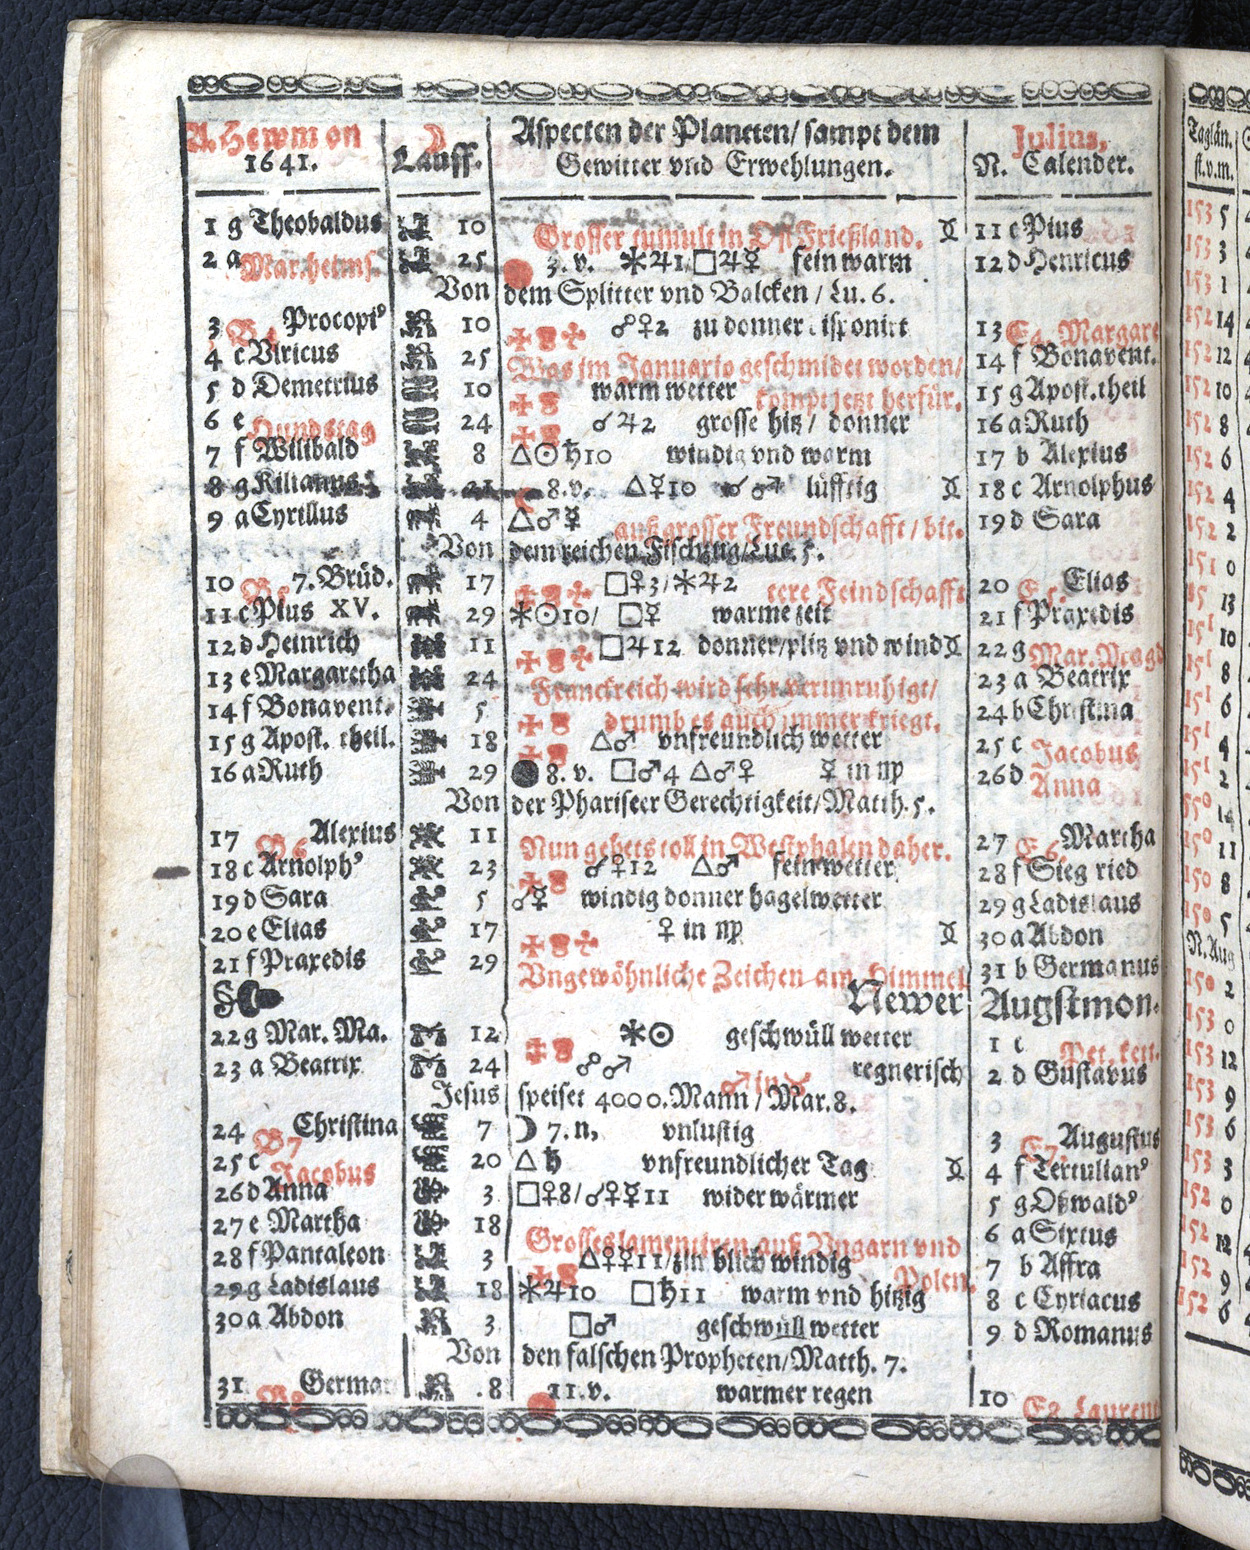 A. Hewmon ☽ Aspecten der Planeten/ sampt dem Julius,
1641. Lauff. Gewitter vnd Erwehlungen. N. Calender.
1 g Theobaldus 10 Grosser tumult in Ost Frießland. 11 c Pius
2 a Mar. heims. 25 3. v. ⚹♃1. □♃☿ fein warm 12 d Henricus
Von dem Splitter vnd Balcken / Lu. 6.
3 Procopi⁹ 10 ☍♀2 zu donner disponirt 13 E4 Margare
4 c Vlricus 25 Was im Januario geschmidet worden/ 14 f Bonavent.
5 d Demetrius 10 warm wetter kompt jetzt herfür. 15 g Apost. theil
6 e Hundstag 24 ☌♃2 grosse hitz / donner 16 a Ruth
7 f Wilibald 8 △☉♄10 windig vnd warm 17 b Alexius
8 g Kilianus 21 ☾ 8. v. △☿10 ☌♂ lüfftig 18 c Arnolphus
9 a Cyrillus 4 △♂☿ auß grosser Freundschafft / bit. 19 d Sara
Von dem reichen Fischzug/Luc. 5.
10 7. Brüd. 17 □♀3/⚹♃2 tere Feindschafft 20 Elias
11 c Pius XV. 29 ⚹☉10/ □☿ warme zeit 21 f Praxedis
12 d Heinrich 11 □♃12 donner/plitz vnd wind 22 g Mar. Magd
13 e Margaretha 24 Franckreich wird sehr verunruhigt/ 23 a Beatrix
14 f Bonavent. 5 drumb es auch immer kriegt. 24 b Christina
15 g Apost. theil. 18 △♂ vnfreundlich wetter 25 c Jacobus
16 a Ruth 29 ● 8. v. □♂4 △♂♀ ☿ in ♍ 26 d Anna
Von der Phariseer Gerechtigkeit/Matth. 5.
17 B6 Alexius 11 Nun gehets toll in Westphalen daher. 27 E6 Martha
18 c Arnolph⁹ 23 ☌♀12 △♂ fein wetter 28 f Sieg ried
19 d Sara 5 ☍☿ windig donner hagelwetter 29 g Ladislaus
20 e Elias 17 ♀ in ♍ 30 a Abdon
21 f Praxedis 29 Vngewöhnliche Zeichen am Himmel 31 b Germanus
Newer Augstmon.
22 g Mar. Ma. 12 ⚹☉ geschwüll wetter 1 c Pet. kett.
23 a Beatrix 24 ☍♂ ♂ in ♉ regnerisch 2 d Gustavus
Jesus speiset 4000. Mann / Mar. 8.
24 B7 Christina 7 ☽ 7. n, vnlustig 3 E7 Augustus
25 c Jacobus 20 △ ♄ vnfreundlicher Tag 4 f Tertulian⁹
26 d Anna 3 □♀8/☌♀☿11 wider wärmer 5 g Oßwald⁹
27 e Martha 18 Grosses lamentiren auß Vngarn vnd 6 a Sixtus
28 f Pantaleon 3 △♀☿11/zimblich windig Polen. 7 b Affra
29 g Ladislaus 18 ⚹♃10 □♄11 warm vnd hitzig 8 c Cyriacus
30 a Abdon 3 □♂ geschwüll wetter 9 d Romanus
Von den falschen Propheten/Matth. 7.
31 B8 German 18 11. v. warmer regen 10 E8 Lauren
Taglän.
st. v. m.
153 5
153 3
153 1
152 14
152 12
152 10
152 8
152 6
152 4
152 2
151 0
15 13
151 10
151 8
151 6
151 4
151 2
150 14
150 11
150 8
150 5
N. Aug
150 2
153 0
153 12
153 9
153 6
153 3
152 0
152 12
152 9
152 6